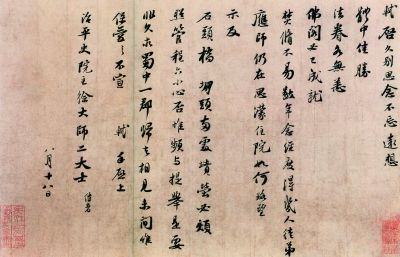 軾啓久別思念不忘遠想
體中佳勝
法眷各無恙
佛閣必已成就
焚脩不易數年念經度得幾人徒弟
應師仍在思濛住院如何略望
示及
石頭橋堋頭兩處墳塋必煩
照管程六小心否惟頻與提舉是要
非久求蜀中一郡歸去相見未間惟
保愛之不宣 軾手啓上
治平史院主徐大師二大士侍者
八月十八日